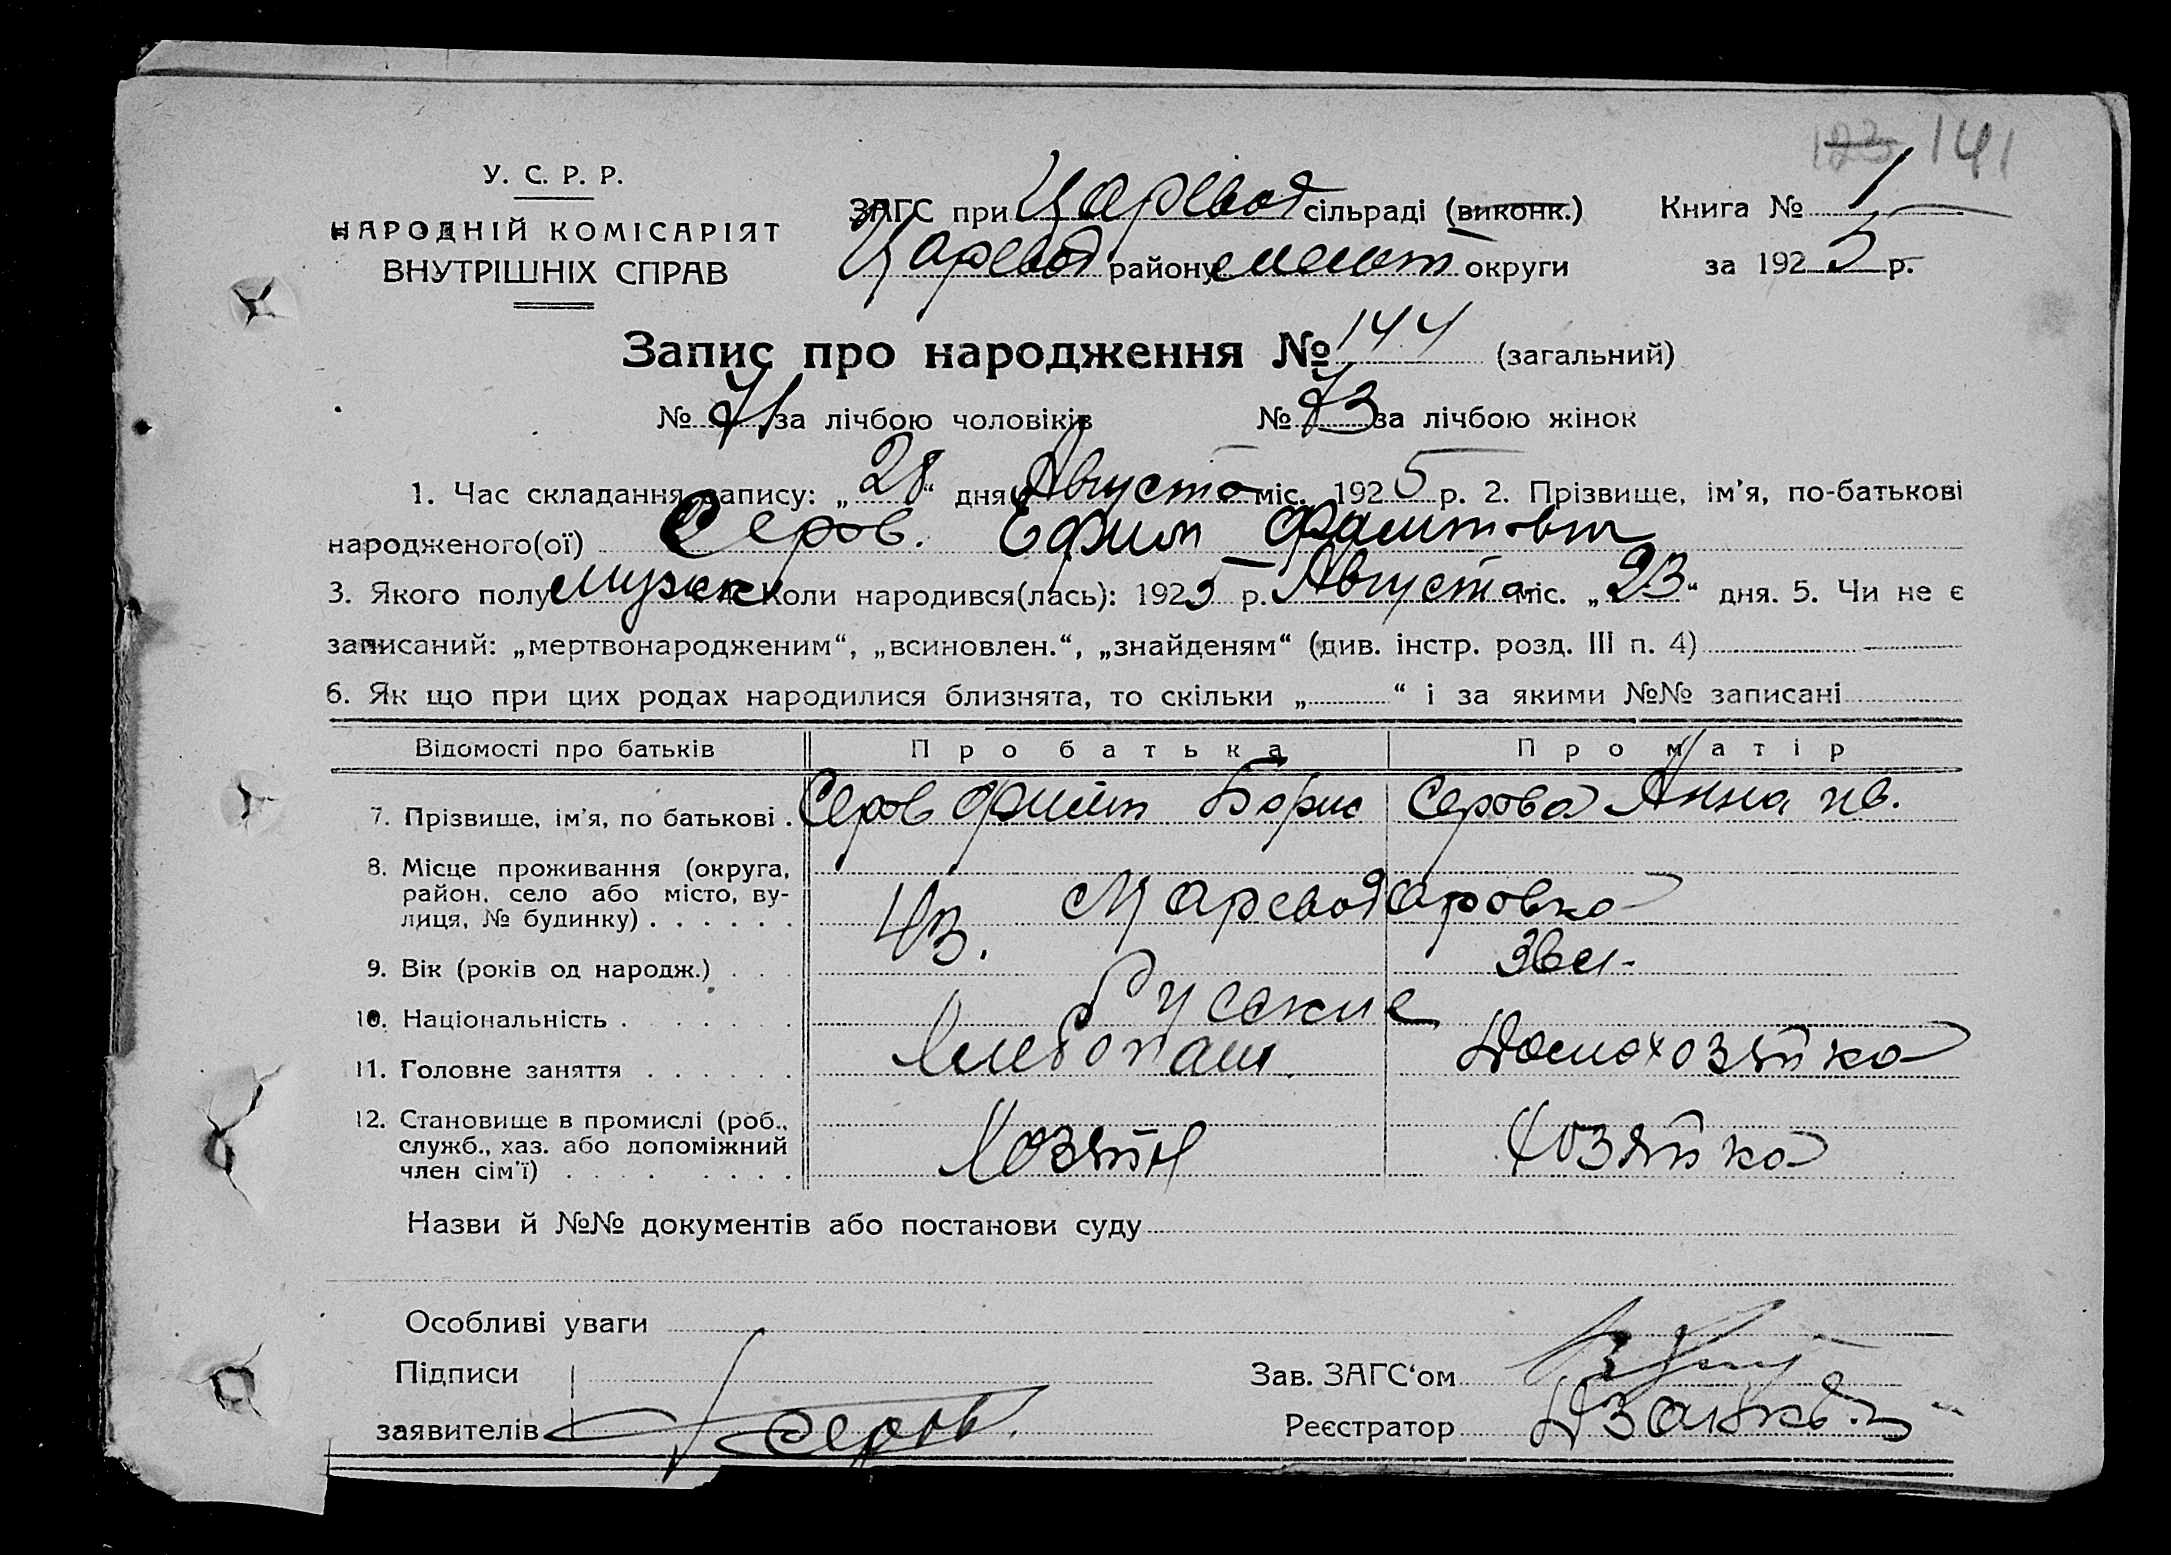 123 141
У. С. Р. Р.
НАРОДНІЙ КОМІСАРІЯТ
ВНУТРІШНІХ СПРАВ
ЗАГС при Царевод сільраді (виконк.)
Царевод району Мелит округи
Книга № 1
за 1925 р.
Запис про народження № 144 (загальний)
№ 71 за лічбою чоловіків № 73 за лічбою жінок
1. Час складання запису: „28“ дня Августа міс. 1925 р. 2. Прізвище, ім'я, по-батькові
народженого(ої) Серов. Ефим
3. Якого полу мужск Коли народився(лась): 1925 р. Августа міс. „23“ дня. 5. Чи не є
записаний: „мертвонародженим“, „всиновлен.“, „знайденям“ (див. інстр. розд. III п. 4)
6. Як що при цих родах народилися близнята, то скільки „ “ і за якими №№ записані
Відомості про батьків Про батька Про матір
7. Прізвище, ім'я, по батькові . Серов Борис Серова Анна ив.
8. Місце проживання (округа,
район, село або місто, ву-
лиця, № будинку) . . . . . . с Цареводаровка
9. Вік (років од народж.) . . . 43.
10. Національність . . . . . . . Русские
11. Головне заняття . . . . . . Хлебопаш. Домохозяйка
12. Становище в промислі (роб.,
служб., хаз. або допоміжний
член сім'ї) . . . . . . . . Хозяин Хозяйка
Назви й №№ документів або постанови суду
Особливі уваги
Підписи
заявителів Серов.
Зав. ЗАГС'ом
Реєстратор